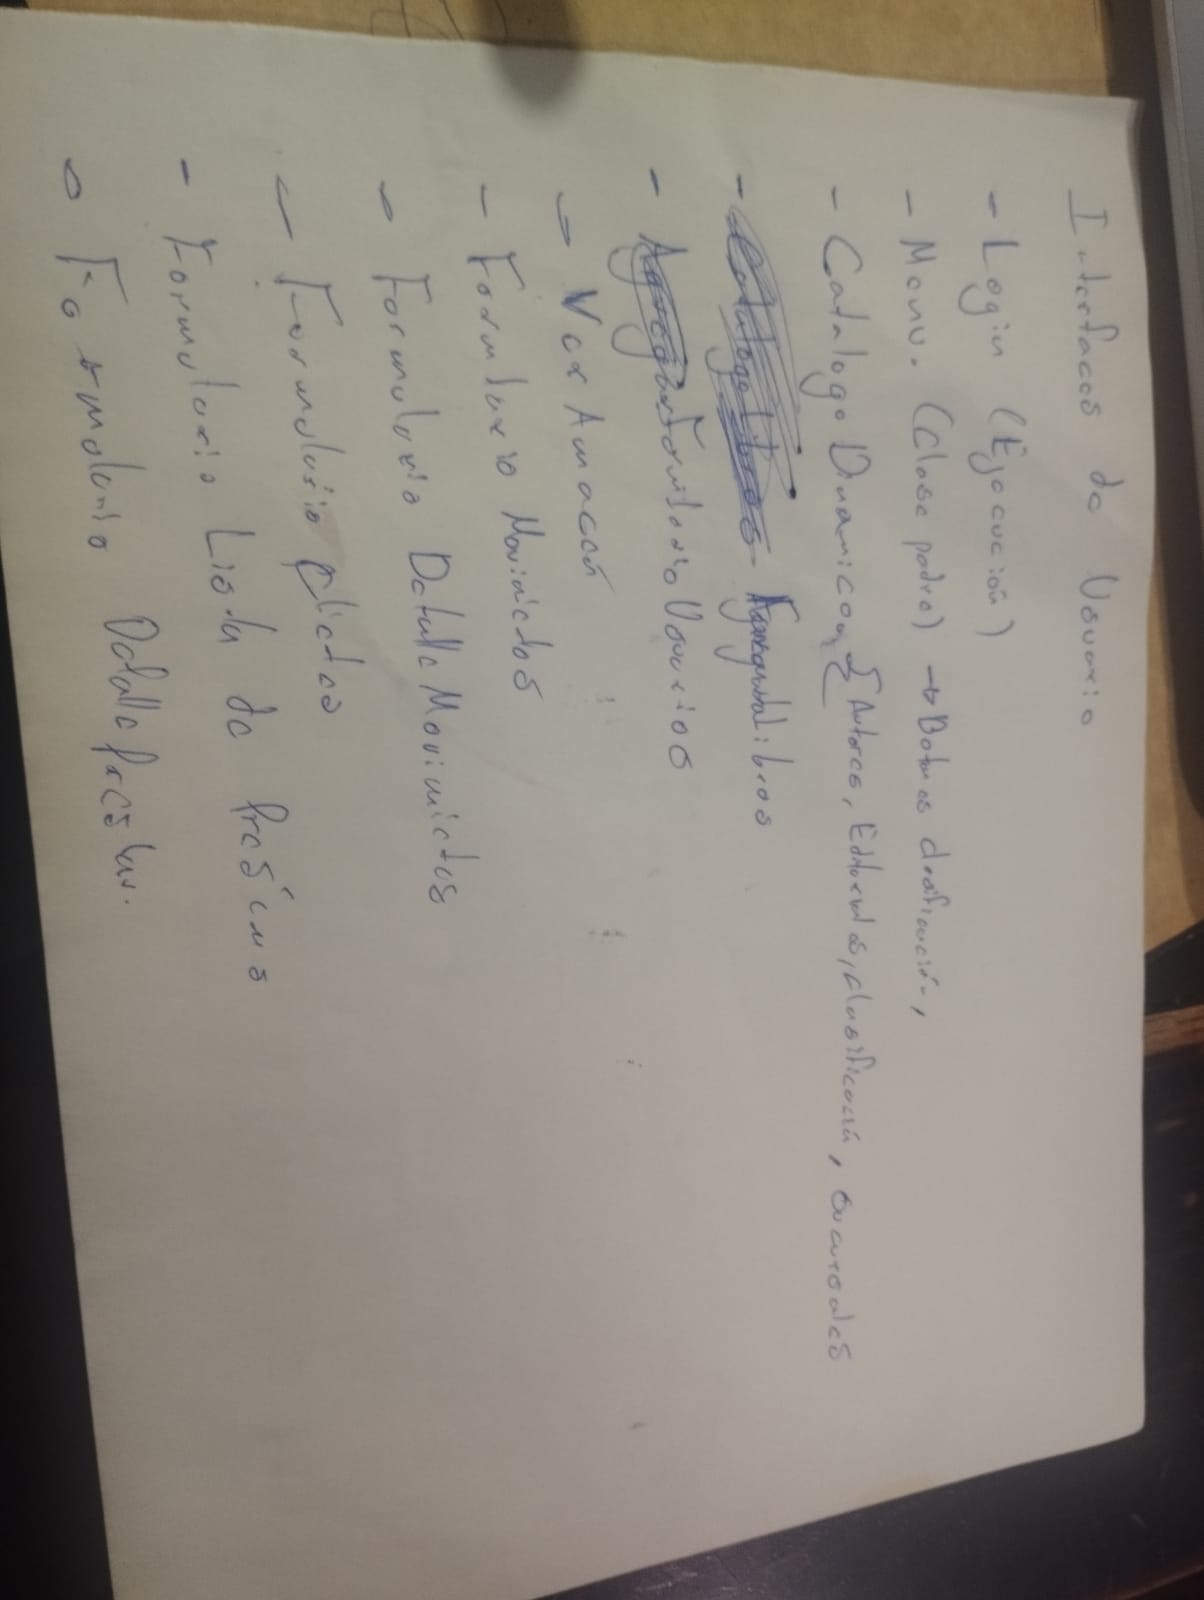 Interfaces de Usuario
- Login (Ejecución)
- Menu. (Clase padre) → Botones dosificación,
- Catalogo Dinamico, { Autores, Editoriales, clasificación, sucursales
- Catalogo Libros AgregarLibros
- Agregar Formulario Usuarios
- Ver Amacén
- Formulario Movimietos
- Formulario Detalle Movimietos
- Formulario clietes
- Formulario Lista de
- Formulario Detalle